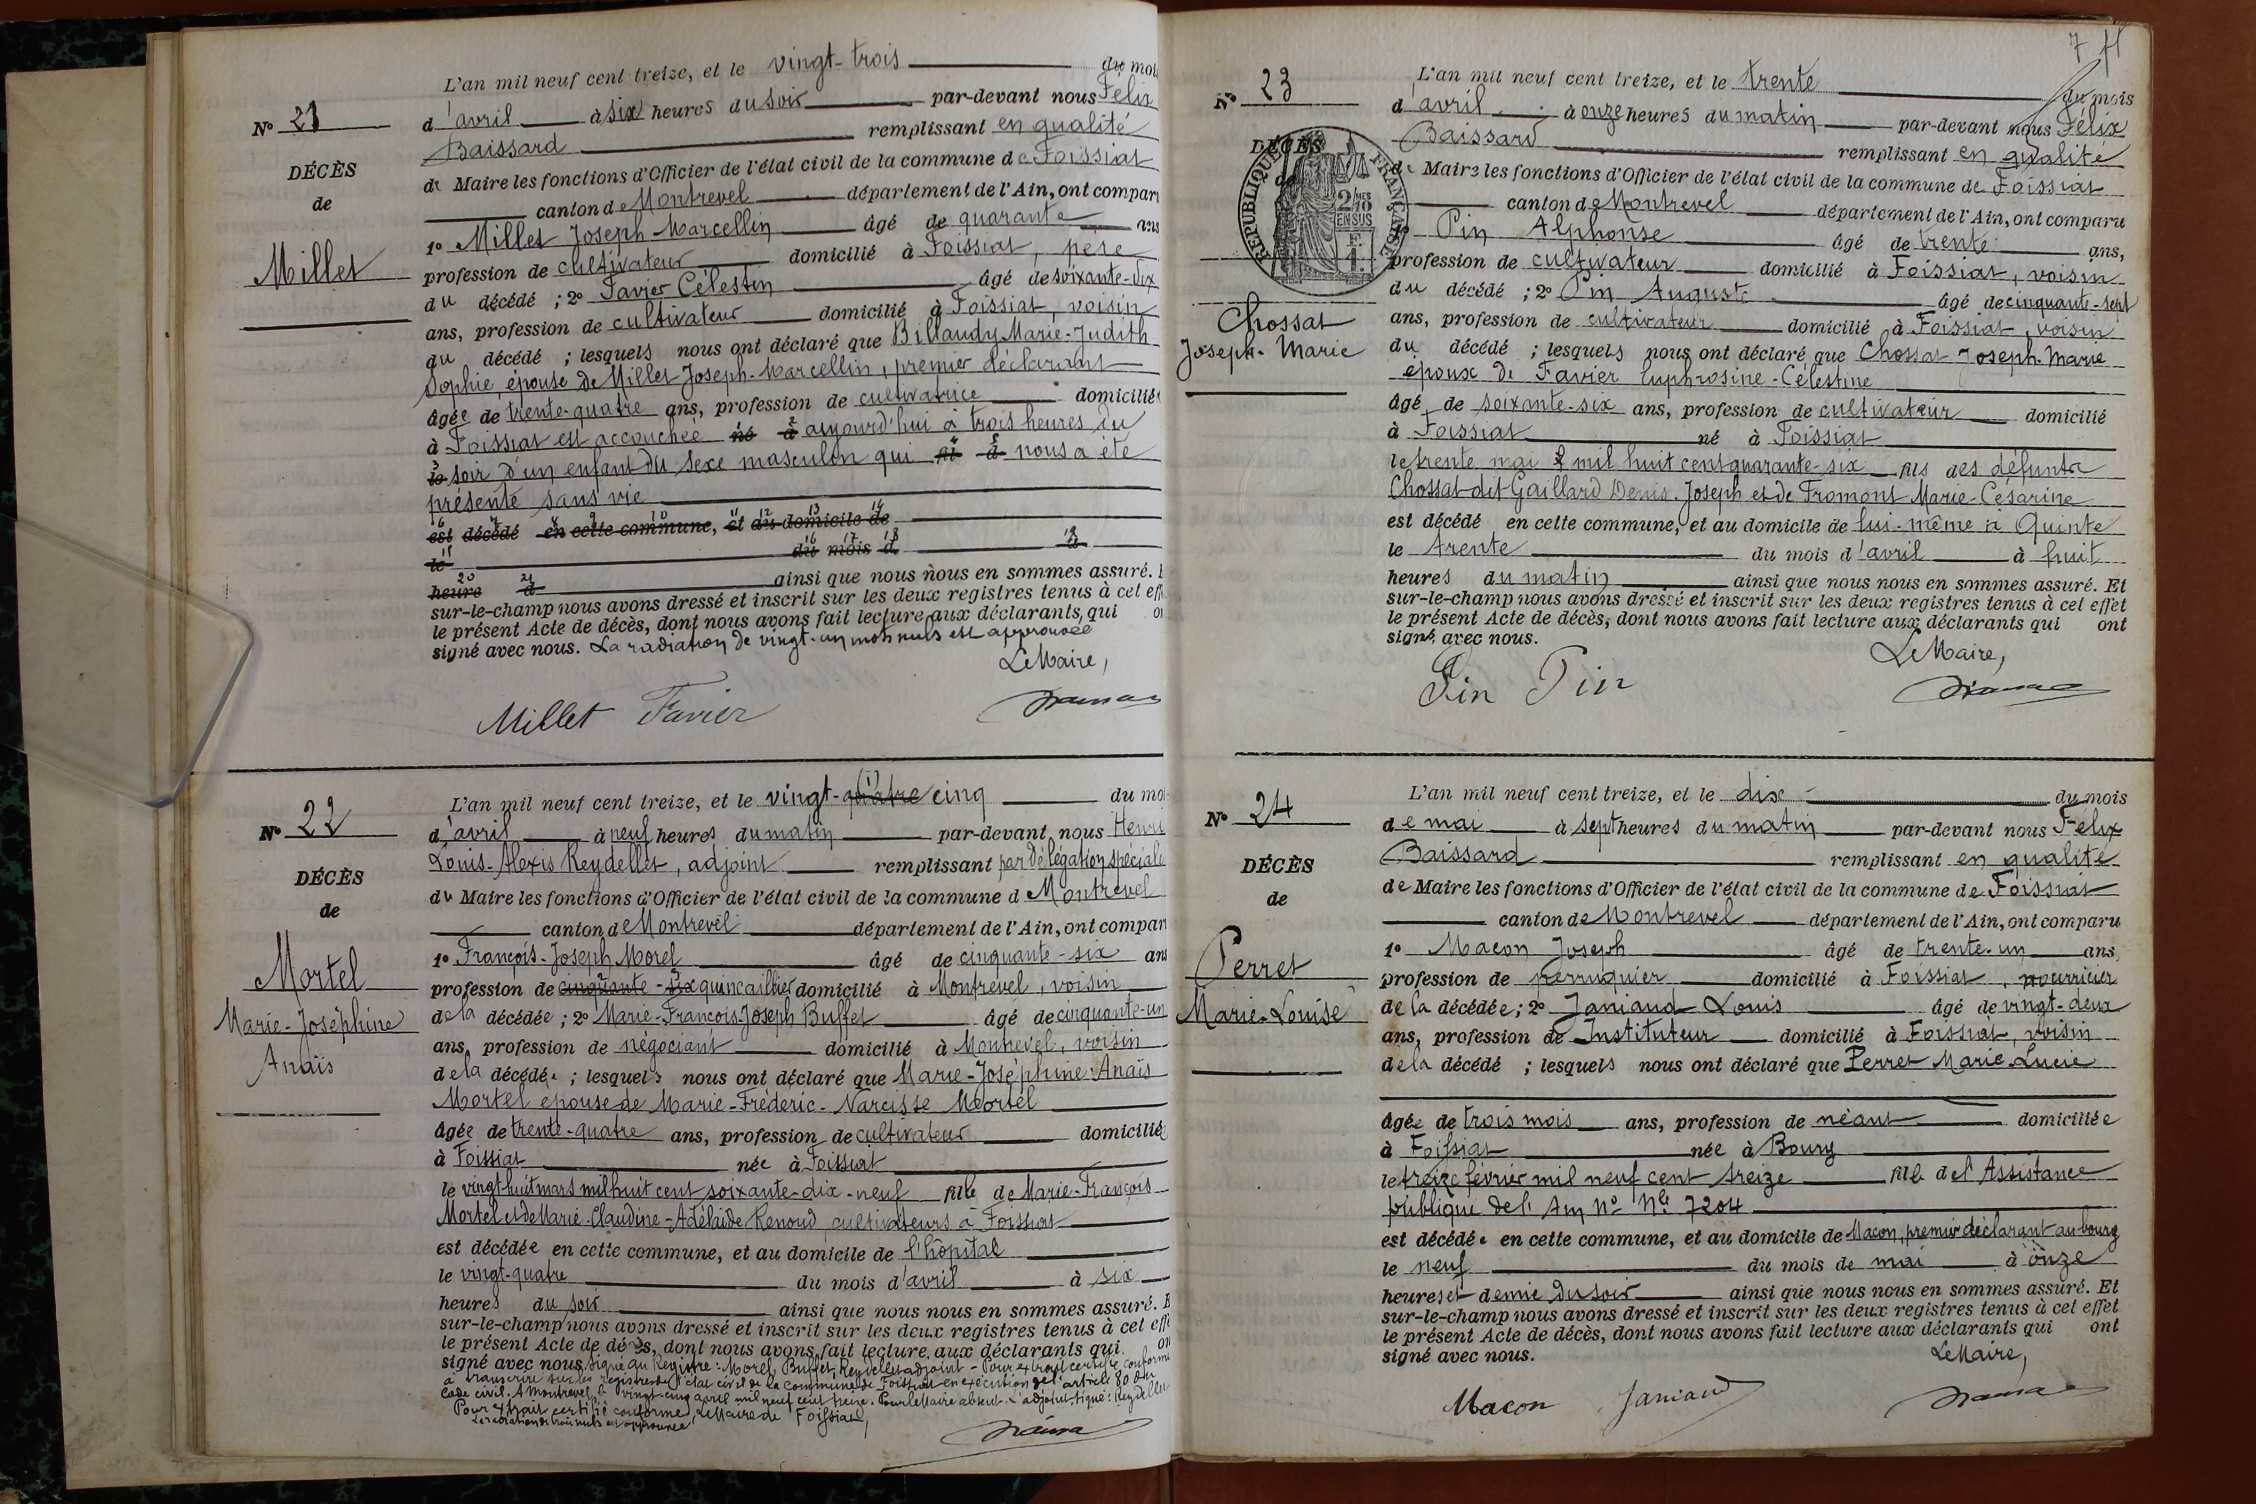 L'an mil neuf cent treize, et le vingt-trois du moi
N° 21
d'avril à six heures du soir par-devant nous Félix
Baissard remplissant en qualité
DÉCÈS
de Maire les fonctions d'Officier de l'état civil de la commune de Foissiat
de
canton de Montrevel département de l'Ain, ont compar
Millet
1° Millet Joseph Marcellin âgé de quarante ans
profession de cultivateur domicilié à Foissiat, père
du décédé ; 2° Favier Célestin âgé de soixante-dix
ans, profession de cultivateur domicilié à Foissiat, voisin
du décédé ; lesquels nous ont déclaré que Billaudy Marie-Judith
Sophie, épouse de Millet Joseph-Marcellin, premier déclarant
âgée de trente-quatre ans, profession de cultivatrice domiciliée
à Foissiat est accouchée né à aujourd'hui à trois heures du
le soir d'un enfant du sexe masculin qui nous a été
présenté sans vie
est décédé en cette commune, et du domicile de
le du mois d à
heure d ainsi que nous nous en sommes assuré. E
sur-le-champ nous avons dressé et inscrit sur les deux registres tenus à cet eff
le présent Acte de décès, dont nous avons fait lecture aux déclarants, qui on
signé avec nous. La radiation de vingt-un mots nuls est approuvée
Le Maire,
Millet Favier
L'an mil neuf cent treize, et le vingt-quatre cinq du moi
N° 22
d'avril à neuf heures du matin par-devant nous Henri
Louis-Alexis Reydellet, adjoint remplissant par délégation spéciale
DÉCÈS
du Maire les fonctions d'Officier de l'état civil de la commune d Montrevel
de
canton de Montrevel département de l'Ain, ont compar
Mortel
Marie-Joséphine
Anaïs
1° François-Joseph Morel âgé de cinquante-six ans
profession de cinquante-six quincaillier domicilié à Montrevel, voisin
de la décédée ; 2° Marie-François-Joseph Buffet âgé de cinquante-un
ans, profession de négociant domicilié à Montrevel, voisin
de la décédée ; lesquels nous ont déclaré que Marie-Joséphine-Anaïs
Mortel épouse de Marie-Fréderic-Narcisse Mortel
âgée de trente-quatre ans, profession de cultivateur domiciliée
à Foissiat née à Foissiat
le vingt huit mars mil huit cent soixante-dix-neuf fille de Marie-François
Mortel et de Marie-Claudine-Adélaïde Renoud cultivateurs à Foissiat
est décédée en cette commune, et au domicile de l'hôpital
le vingt-quatre du mois d'avril à six
heures du soir ainsi que nous nous en sommes assuré. E
sur-le-champ nous avons dressé et inscrit sur les deux registres tenus à cet eff
le présent Acte de décès, dont nous avons fait lecture aux déclarants qui on
signé avec nous. Signé au Registre : Morel, Buffet, Reydellet adjoint - Pour extrait certifié conforme
à transcrire sur les registres de l'état civil de la commune de Foissiat en exécution de l'article 80 du
Code civil. A Montrevel, le vingt-cinq avril mil neuf cent treize. Pour le Maire absent. L'adjoint signé : Reydellet
Pour extrait certifié conforme, Le Maire de Foissiat,
La radiation de trois mots est approuvée
7
L'an mil neuf cent treize, et le trente du mois
N° 23
d'avril à onze heures du matin par-devant nous Félix
Baissard remplissant en qualité
DÉCÈS
de
RÉPUBLIQUE FRANÇAISE
2/10 EN SUS
de Maire les fonctions d'Officier de l'état civil de la commune de Foissiat
canton de Montrevel département de l'Ain, ont comparu
Pin Alphonse âgé de trente ans,
profession de cultivateur domicilié à Foissiat, voisin
du décédé ; 2° Pin Auguste âgé de cinquante-sept
Chossat
Joseph-Marie
ans, profession de cultivateur domicilié à Foissiat, voisin
du décédé ; lesquels nous ont déclaré que Chossat Joseph-Marie
époux de Favier Euphrosine-Célestine
âgé de soixante-six ans, profession de cultivateur domicilié
à Foissiat né à Foissiat
le trente mai mil huit cent quarante-six fils des défunts
Chossat dit Gaillard Denis-Joseph et de Fromont Marie-Césarine
est décédé en cette commune, et au domicile de lui-même à Quinte
le trente du mois d'avril à huit
heures du matin ainsi que nous nous en sommes assuré. Et
sur-le-champ nous avons dressé et inscrit sur les deux registres tenus à cet effet
le présent Acte de décès, dont nous avons fait lecture aux déclarants qui ont
signé avec nous.
Le Maire,
Pin Pin
L'an mil neuf cent treize, et le dix du mois
N° 24
de mai à sept heures du matin par-devant nous Félix
Baissard remplissant en qualité
DÉCÈS
de Maire les fonctions d'Officier de l'état civil de la commune de Foissiat
de
canton de Montrevel département de l'Ain, ont comparu
Perret
Marie-Louise
1° Macon Joseph âgé de trente-un ans,
profession de perruquier domicilié à Foissiat, nourricier
de la décédée ; 2° Janiaud Louis âgé de vingt-deux
ans, profession de Instituteur domicilié à Foissiat, voisin
de la décédé ; lesquels nous ont déclaré que Perret Marie-Lucie
âgée de trois mois ans, profession de néant domiciliée
à Foissiat née à Bourg
le treize février mil neuf cent treize fille de l'Assistance
publique de l'Ain N° 7204
est décédée en cette commune, et au domicile de Macon, premier déclarant au bourg
le neuf du mois de mai à onze
heures et demie du soir ainsi que nous nous en sommes assuré. Et
sur-le-champ nous avons dressé et inscrit sur les deux registres tenus à cet effet
le présent Acte de décès, dont nous avons fait lecture aux déclarants qui ont
signé avec nous.
Le Maire,
Macon Janiaud